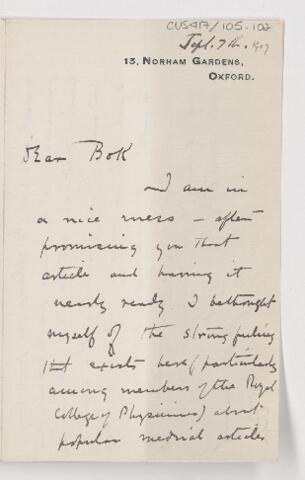 CUS417/105.102
Sept. 7th. 1907
13, NORHAM GARDENS,
OXFORD.
Dear Bok
I am in
a nice mess – after
promising you that
article and having it
nearly ready I bethought
myself of the strong feeling
that exists here (particularly
among members of the Royal
College of Physicians) about
popular medical articles